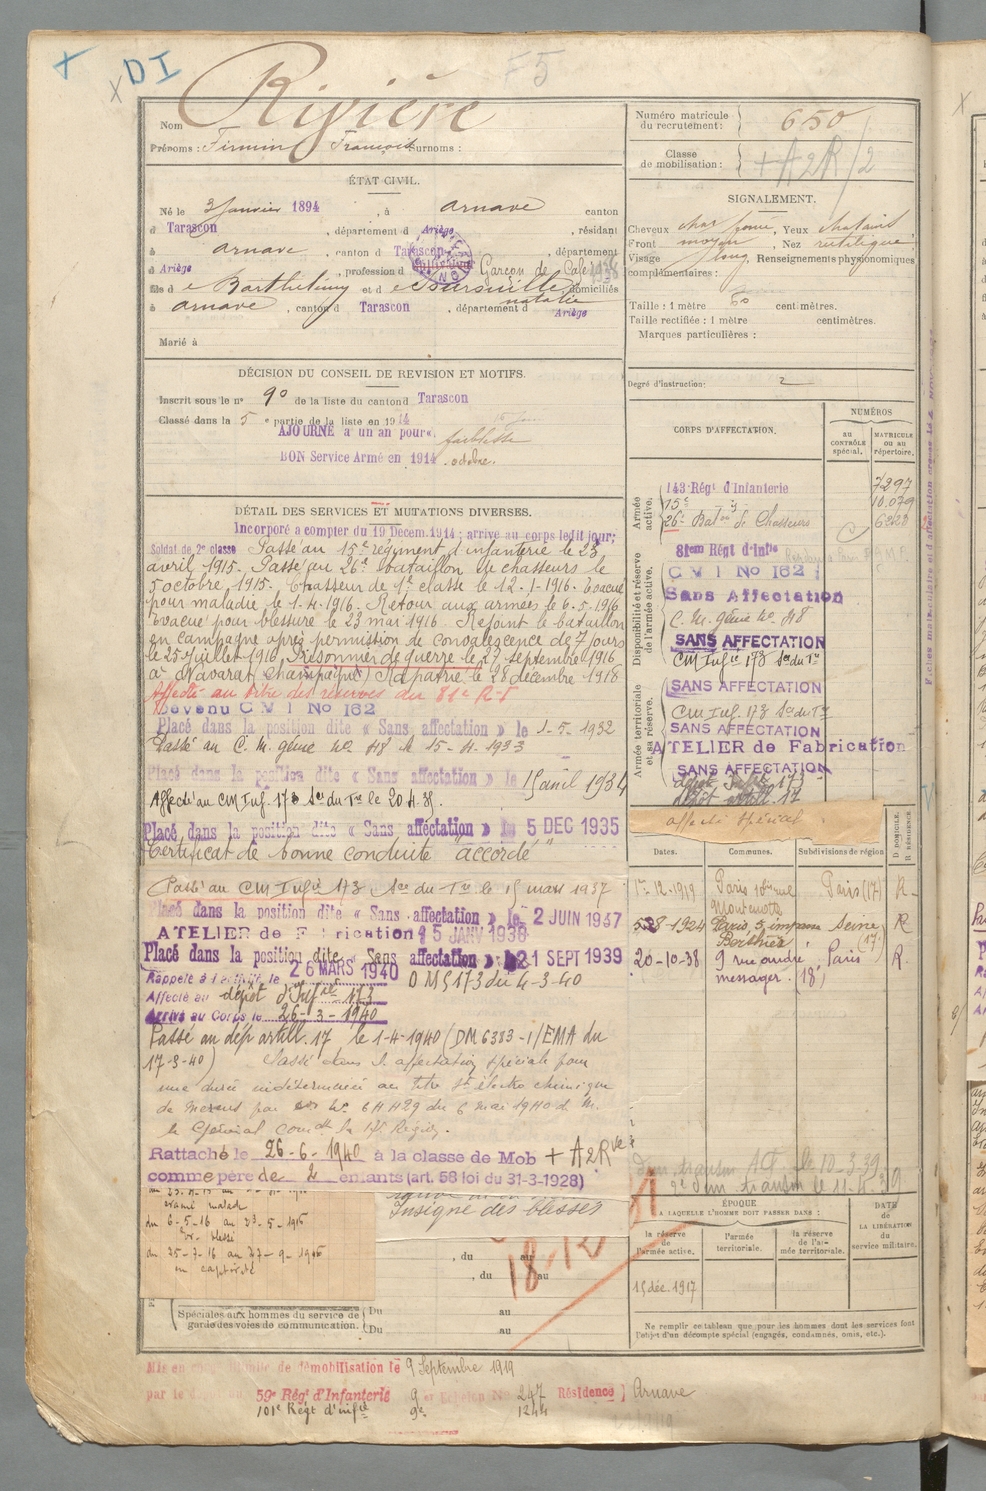 + DI
F5
Rivière
Nom
Prénoms : Firmin François Surnoms :
ÉTAT CIVIL.
Né le 3 janvier 1894, à arnave canton
d Tarascon, département d Ariège, résidant
à arnave, canton d Tarascon, département
d Ariège, profession d Garçon de Café
fils de Barthélemy et de domiciliés
natalie
à arnave, canton d Tarascon, département d Ariège
Marié à
DÉCISION DU CONSEIL DE REVISION ET MOTIFS.
Inscrit sous le n° 90 de la liste du canton d Tarascon
Classé dans la 5e partie de la liste en 1914
AJOURNÉ a un an pour faiblesse
BON Service Armé en 1914 . octobre.
DÉTAIL DES SERVICES ET MUTATIONS DIVERSES.
Incorporé a compter du 19 Decem. 1914 ; arrivé au corps ledit jour;
Soldat de 2e classe Passé au 15e régiment d'infanterie le 23
avril 1915. Passé au 26e bataillon de chasseurs le
5 octobre 1915. Chasseur de 1e classe le 12-1-1916. Evacué
pour maladie le 1-4-1916. Retour aux armées le 6-5-1916
Evacué pour blessure le 23 mai 1916. Rejoint le bataillon
en campagne après permission de convalescence de 7 jours
le 25 juillet 1916. Prisonnier de guerre le 27 septembre 1916
à Navarat (champagne) Rapatrié le 28 décembre 1918
Affecté au titre des réserves du 81e R.I
Devenu C M I No 162
Placé dans la position dite « Sans affectation » le 1-5-1932
Passé au C. M. génie no 48 le 15-4-1933
Placé dans la position dite « Sans affectation » le 15 avril 1934
Affecté au CM Inf. 173 Son du Tn le 20.4.35.
Placé dans la position dite « Sans affectation » le 5 DEC 1935
Certificat de bonne conduite "accordé"
Passé au CM Infie 173 Son du Tn le 15 mars 1937
Placé dans la position dite « Sans affectation » le 2 JUIN 1937
ATELIER de Fabrication 15 JANV 1938
Placé dans la position dite « Sans affectation » le 21 SEPT 1939
Rappelé à l'activité le 26 MARS 1940 OM § 173 du 4-3-40
Affecté au dépôt d'Infie 173
Arrivé au Corps le 26-3-1940
Passé au dép artill. 17 le 1-4-1940 (DM 6383-1/EMA du
17-3-40) Classé dans l'affectation spéciale pour
une durée indéterminée au titre St électro chimique
de Mercus par no 6 H H29 du 6 mai 1940 d. M.
le Général comdt la 17e Région.
Rattaché le 26-6-1940 à la classe de Mob + A2R
comme père de 2 enfants (art. 58 loi du 31-3-1928)
évacué malade
du 6-5-16 au 23-5-1916
Ev. blessé
du 25-7-16 au 27-9-1916
en captivité
Insigne des blessés
, du au
, du au
18-12
Spéciales aux hommes du service de
garde des voies de communication.
Du au
Du au
Mis en congé illimité de démobilisation le 9 Septembre 1919
par le 59e Régt d'Infanterie 9 er Echelon No 247 Résidence } Arnave
101e Régt d'infie 9e 1244
Numéro matricule
du recrutement : 650
Classe
de mobilisation : + A2R/2
SIGNALEMENT.
Cheveux chat foncé, Yeux chatains
Front moyen, Nez rectiligne
Visage long Renseignements physionomiques
complémentaires :
Taille : 1 mètre 60 centimètres.
Taille rectifiée : 1 mètre centimètres.
Marques particulières :
Degré d'instruction : 2
CORPS D'AFFECTATION.
NUMÉROS
AU CONTRÔLE spécial.
MATRICULE OU AU répertoire.
Armée active.
143 Régt d'Infanterie 7297
15e 10.079
26e Baton de Chasseurs 6228
Disponibilité et réserve de l'armée active.
81em Régt d'Infie
C M I No 162
Sans Affectation
C. M. génie no 48
SANS AFFECTATION
CM Infie 173 Son du Tn
Armée territoriale et sa réserve.
SANS AFFECTATION
CM Inf. 173 Son du Tn
SANS AFFECTATION
ATELIER de Fabrication
SANS AFFECTATION
dépôt Infie 173
dépôt artill. 17
affecté spécial
Dates. Communes. Subdivisions de région D. DOMICILE. R. RÉSIDENCE
1er-12-1919 Paris 10 rue Montenotte Paris (17) R.
528-1924 Paris, 5, impasse Berthier Seine (17) R
20-10-38 9 rue andré messager. Paris (18) R.
le 10-3-39
le 11-4-39
ÉPOQUE
A LAQUELLE L'HOMME DOIT PASSER DANS :
DATE de LA LIBÉRATION du service militaire.
la réserve de l'armée active.
l'armée territoriale.
la réserve de l'armée territoriale.
15 déc. 1917
Ne remplir ce tableau que pour les hommes dont les services font
l'objet d'un décompte spécial (engagés, condamnés, omis, etc.).